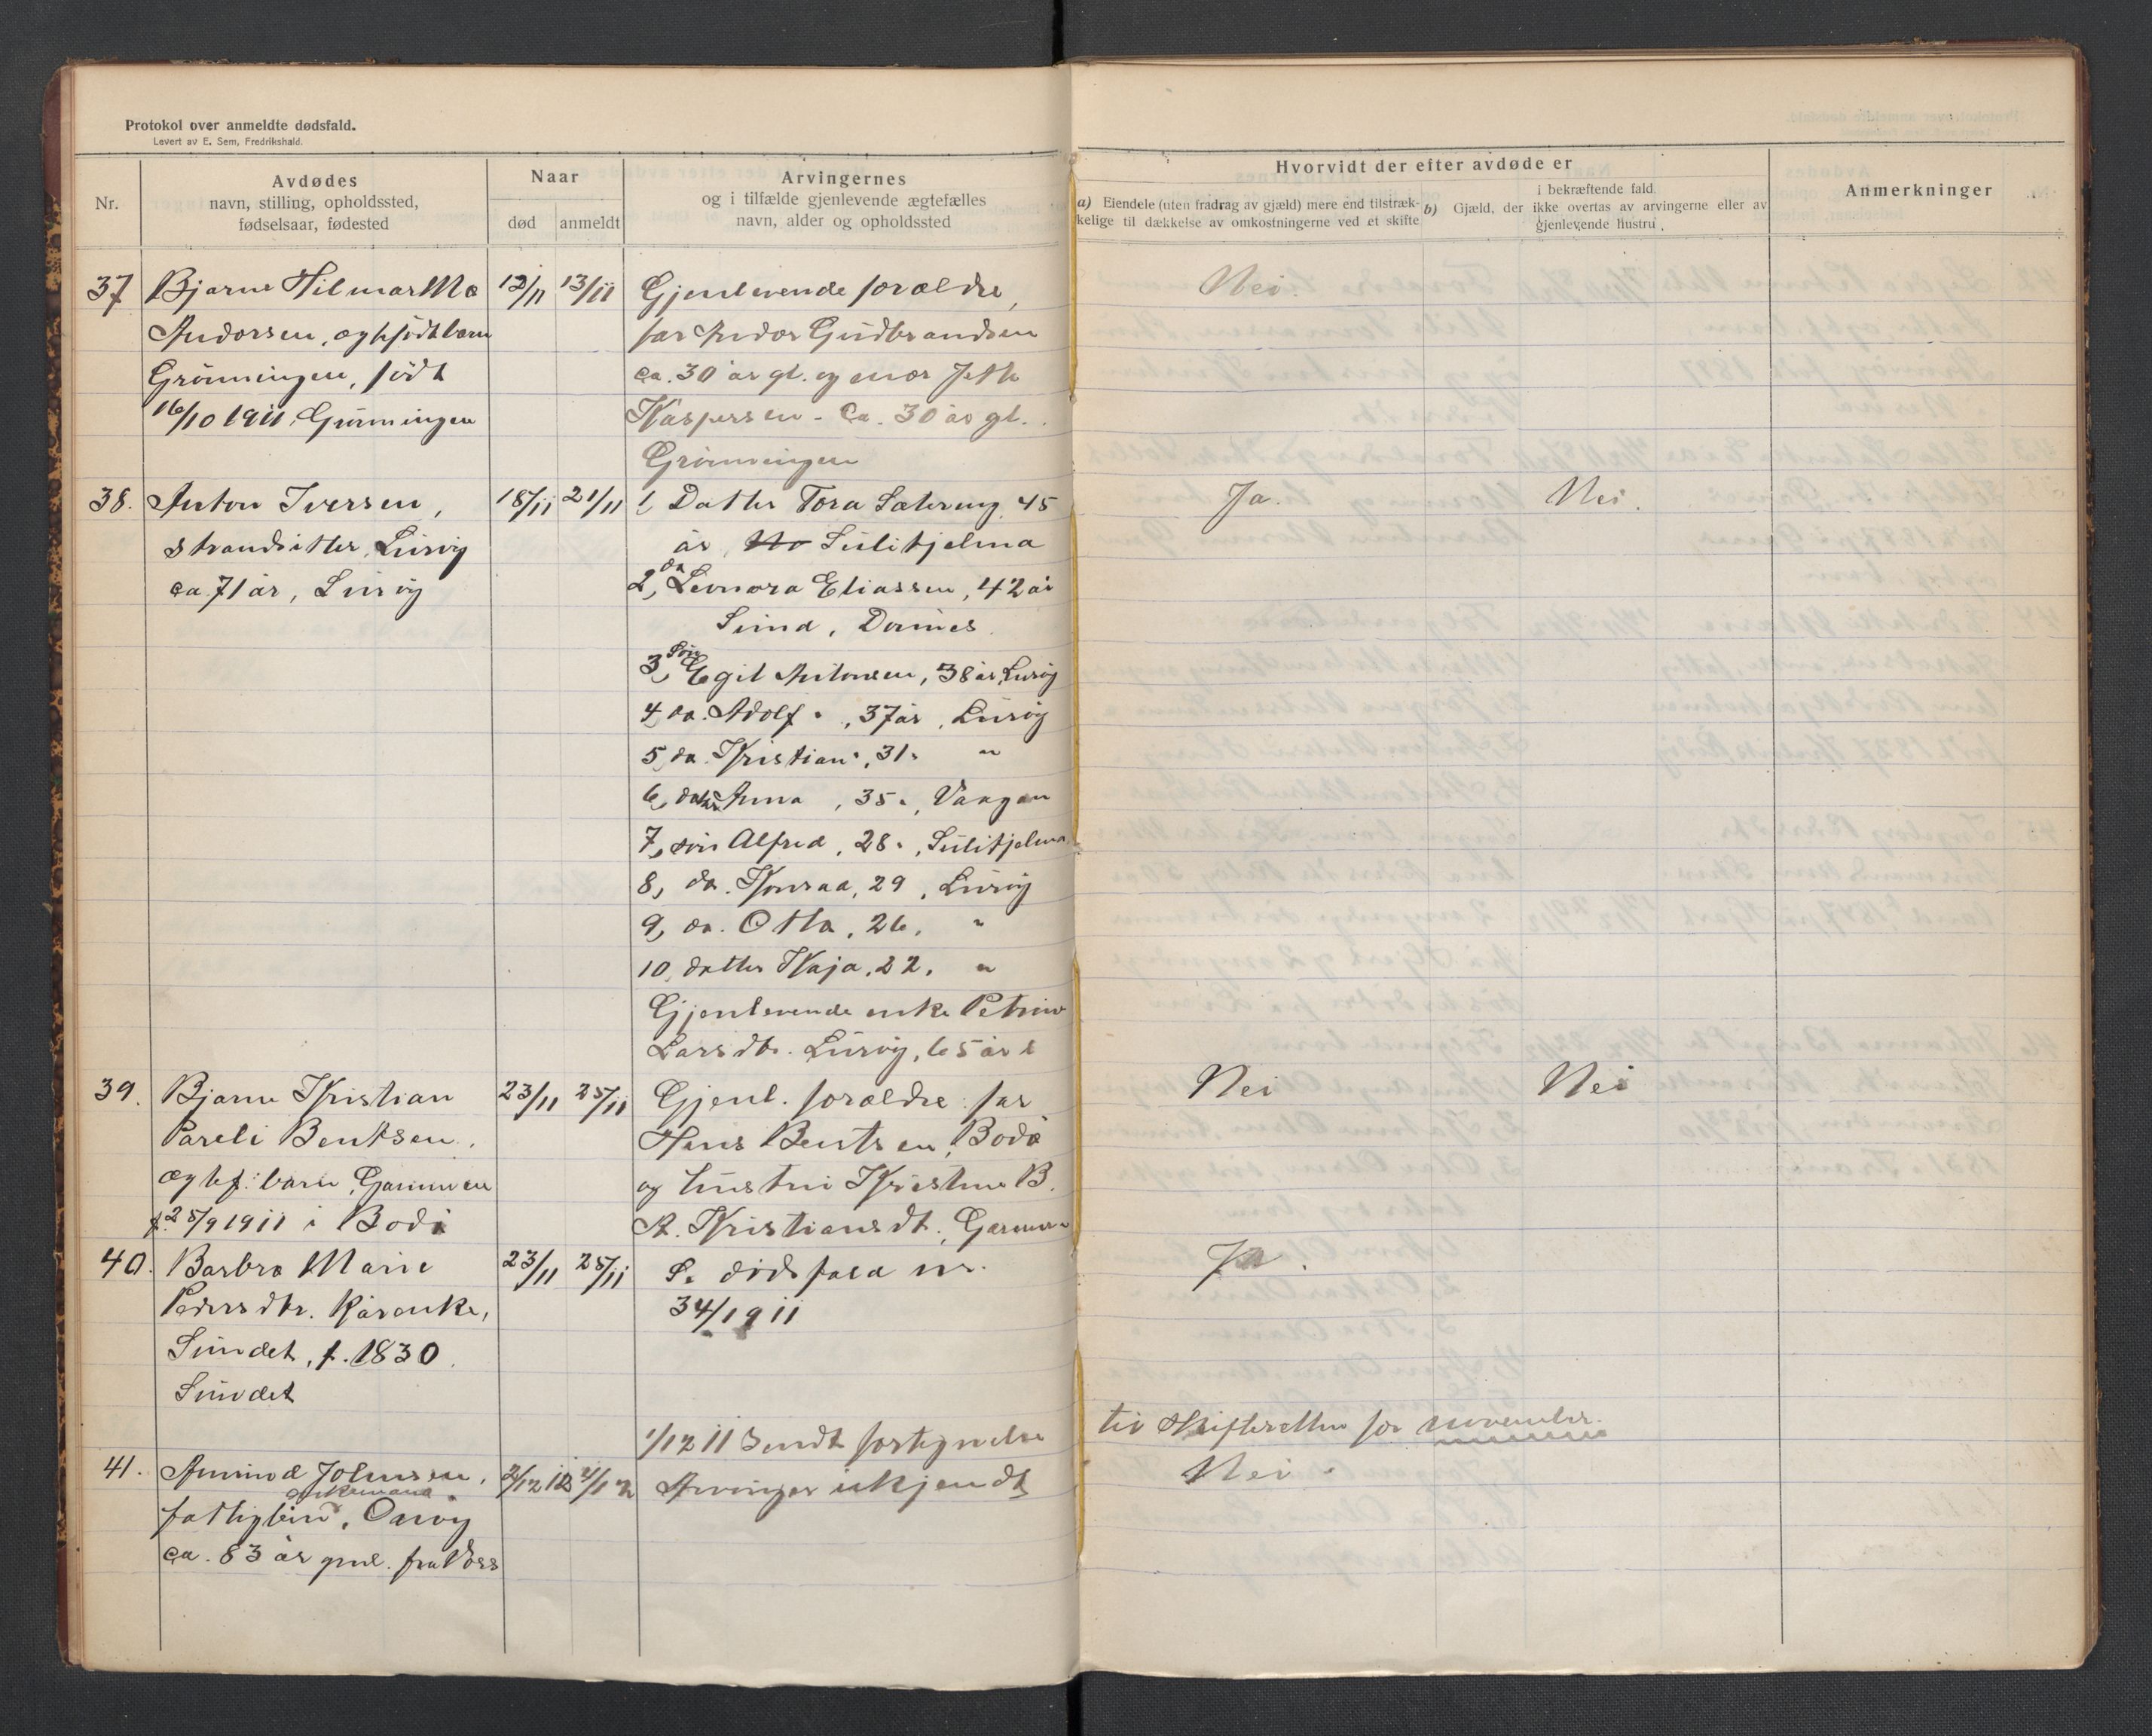 Protokol over anmeldte dødsfald.
Levert av E. Sem, Fredrikshald.
Nr.
Avdødes
navn, stilling, opholdssted,
fødselsaar, fødested
Naar
død
anmeldt
Arvingernes
og i tilfælde gjenlevende ægtefælles
navn, alder og opholdssted
Hvorvidt der efter avdøde er
a) Eiendele (uten fradrag av gjæld) mere end tilstræk-
kelige til dækkelse av omkostningerne ved et skifte
b) Gjæld, der
i bekræftende fald
ikke overtas av arvingerne eller av
gjenlevende hustru
Anmerkninger
37 Bjarne Hilmar 12/11 13/11 Gjenlevende forældre, Nei.
Andorsen, ægtefødt barn far Andor Gudbrandsen
Grönningen, født ca. 30 år gl. og mor
16/10 1911 Grönningen Kaspersen - Ca. 30 år gl.
Grönningen
38. Anton Iversen, 18/11 21/11 1, Datter Tora 45 Ja. Nei.
strandsitter, Lurvig år, Sulitjelma
ca 71 år, Lurvig 2, da Leonora Eliassen, 42 år
Sund,
3, Søn Egil Antonsen, 38 år, Lurvig
4 da. Adolf " , 37 år, Lurvig
5, da. Kristian " , 31 " "
6, datter Anna , 35 " , Vaagan
7, søn Alfred, 28 " , Sulitjelma
8, da. Konrad, 29 , Lurvig
9, da. Otto, 26, "
10, datter Kaja, 22, "
Gjenlevende enke
Larsdtr. Lurvig, 65 år
39. Bjarne Kristian 23/11 25/11 Gjenl. forældre: far Nei Nei
Pareli Bentsen, Hans Bentsen, Bodö
ægtef. barn, og hustru Kristine B.
f. 25/9 1911 i Bodö Kristiansdt.,
40. Barbra Marie 23/11 25/11 Se dödsfald nr. Ja.
Pedersdtr. Kårenke, 34/1911
Sundet, f. 1830.
Sundet
1/12 11 Sendt fortegnelse til skifteretten for november.
41. Johnsen, 2/12 Arvinger ukjendt Nei.
enkemand
fattiglem,
ca. 83 år fra Voss